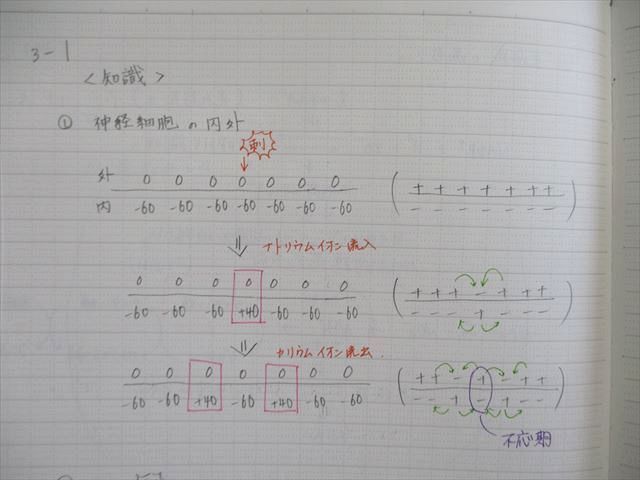 3-1
<知識>
① 神経細胞の内外
刺
外 0 0 0 0 0 0 0
内 -60 -60 -60 -60 -60 -60 -60
( + + + + + + + )
( - - - - - - - )
⇓ ナトリウムイオン流入
0 0 0 0 0 0 0
-60 -60 -60 +40 -60 -60 -60
( + + + - + + + )
( - - - + - - - )
⇓ カリウムイオン流出
0 0 0 0 0 0 0
-60 -60 +40 -60 +40 -60 -60
( + + - + - + + )
( - - + - + - - )
不応期